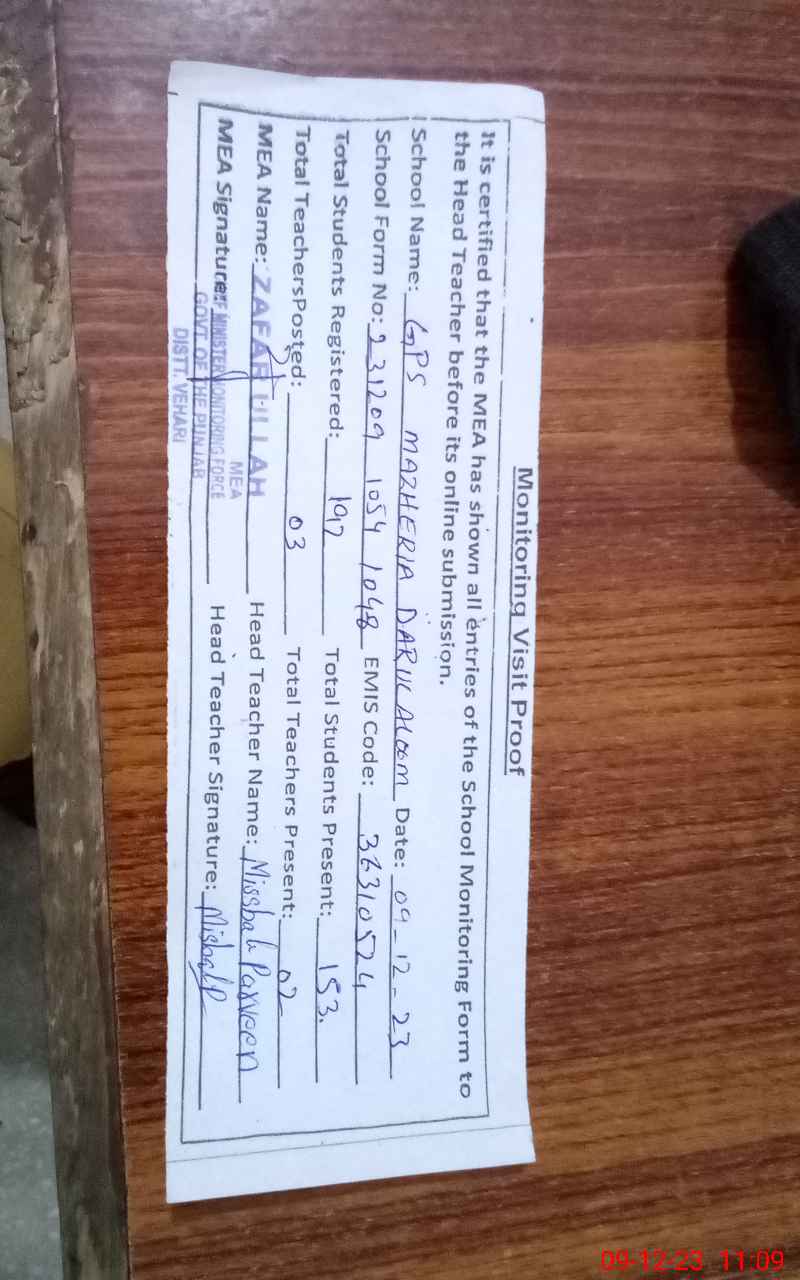 Monitoring Visit Proof
It is certified that the MEA has shown all entries of the School Monitoring Form to
the Head Teacher before its online submission.
School Name: GPS MAZHERIA DARUL ALOOM Date: 09-12-23
School Form No: 231209 1054 1048 EMIS Code: 36310524
Total Students Registered: 192 Total Students Present: 153.
Total TeachersPosted: 03 Total Teachers Present: 02
MEA Name: ZAFAR ULLAH Head Teacher Name: Missbah Parveen
MEA
MEA Signature: MINISTER MONITORING FORCE Head Teacher Signature: MisbahP
GOVT OF THE PUNJAB
DISTT. VEHARI
09-12-23 11:09